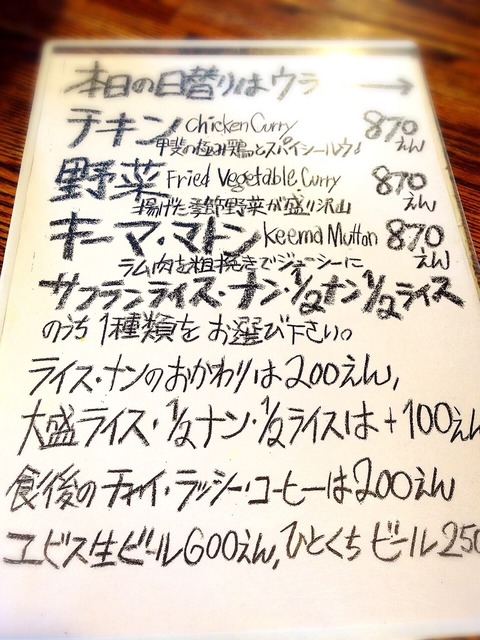 本日の日替りはウラ →
チキン Chicken Curry 870えん
甲斐の極み鶏っとスパイシールウ♪
野菜 Fried Vegetable Curry 870えん
揚げた季節野菜が盛り沢山
キーマ・マトン Keema Mutton 870えん
ラム肉を粗挽きでジューシーに
サフランライス・ナン・½ナン½ライス
のうち1種類をお選び下さい。
ライス・ナンのおかわりは200えん,
大盛ライス・½ナン・½ライスは+100えん
食後のチャイ・ラッシー・コーヒーは200えん
ヱビス生ビール600えん,ひとくちビール250